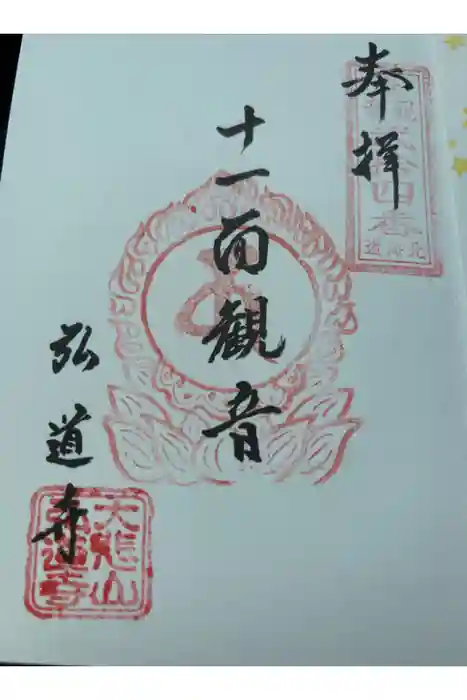 奉拝
十一面観音
弘道寺
大悲山
弘道寺